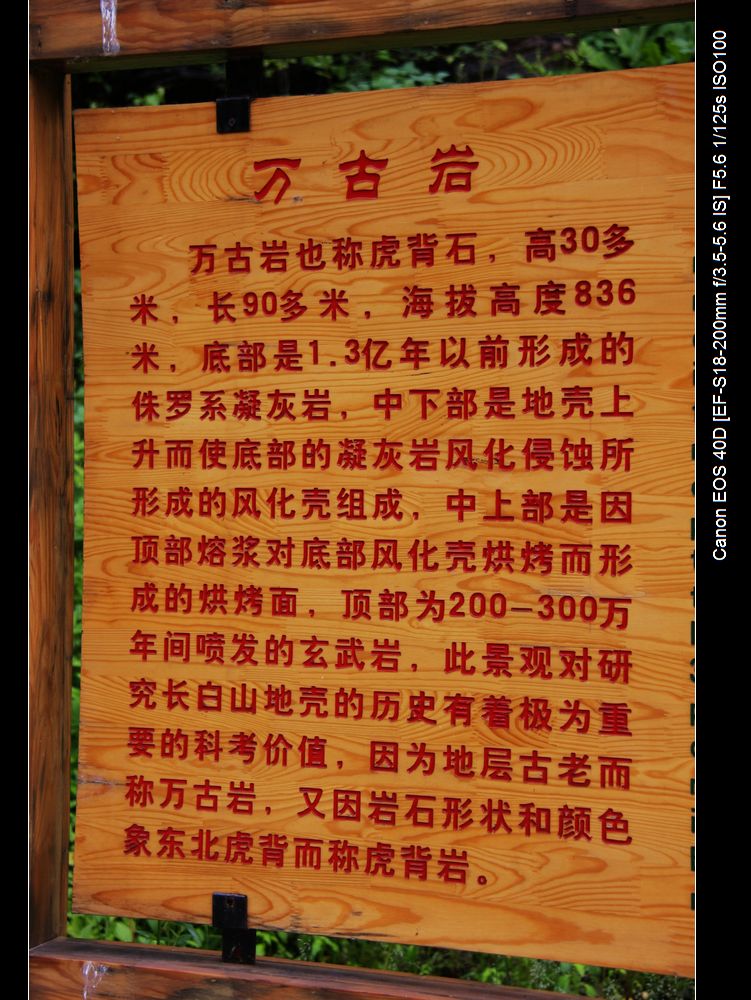 万古岩
万古岩也称虎背石，高30多
米，长90多米，海拔高度836
米，底部是1.3亿年以前形成的
侏罗系凝灰岩，中下部是地壳上
升而使底部的凝灰岩风化侵蚀所
形成的风化壳组成，中上部是因
顶部熔浆对底部风化壳烘烤而形
成的烘烤面，顶部为200—300万
年间喷发的玄武岩，此景观对研
究长白山地壳的历史有着极为重
要的科考价值，因为地层古老而
称万古岩，又因岩石形状和颜色
象东北虎背而称虎背岩。
Canon EOS 40D [EF-S18-200mm f/3.5-5.6 IS] F5.6 1/125s ISO100